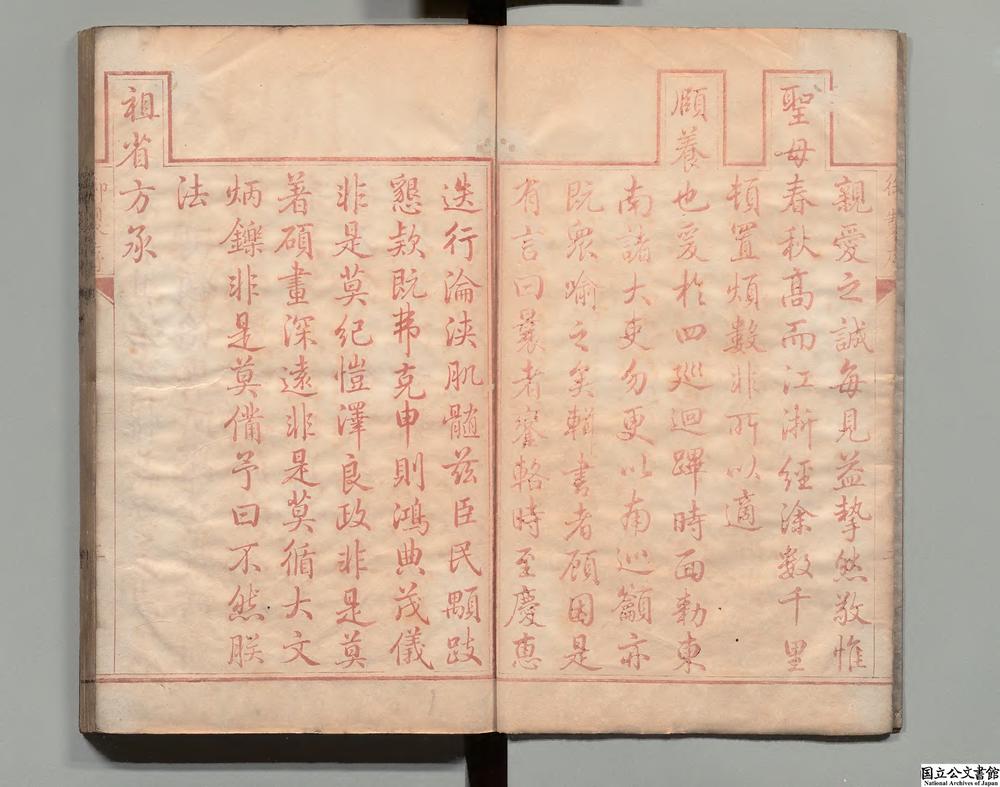 親愛之誠每見益摯然敬惟
聖母春秋高而江浙經塗數千里
頓置煩數非所以適
頤養也爰於四巡迴蹕時面勅東
南諸大吏勿更以南巡籲亦
既衆喻之矣輯書者顧因是
有言曰曩者鑾輅時至慶惠
迭行淪浹肌髓茲臣民顒跂
懇款既弗克申則鴻典茂儀
非是莫紀愷澤良政非是莫
著碩畫深遠非是莫循大文
炳鑠非是莫備予曰不然朕
法
祖省方承
国立公文書館
National Archives of Japan